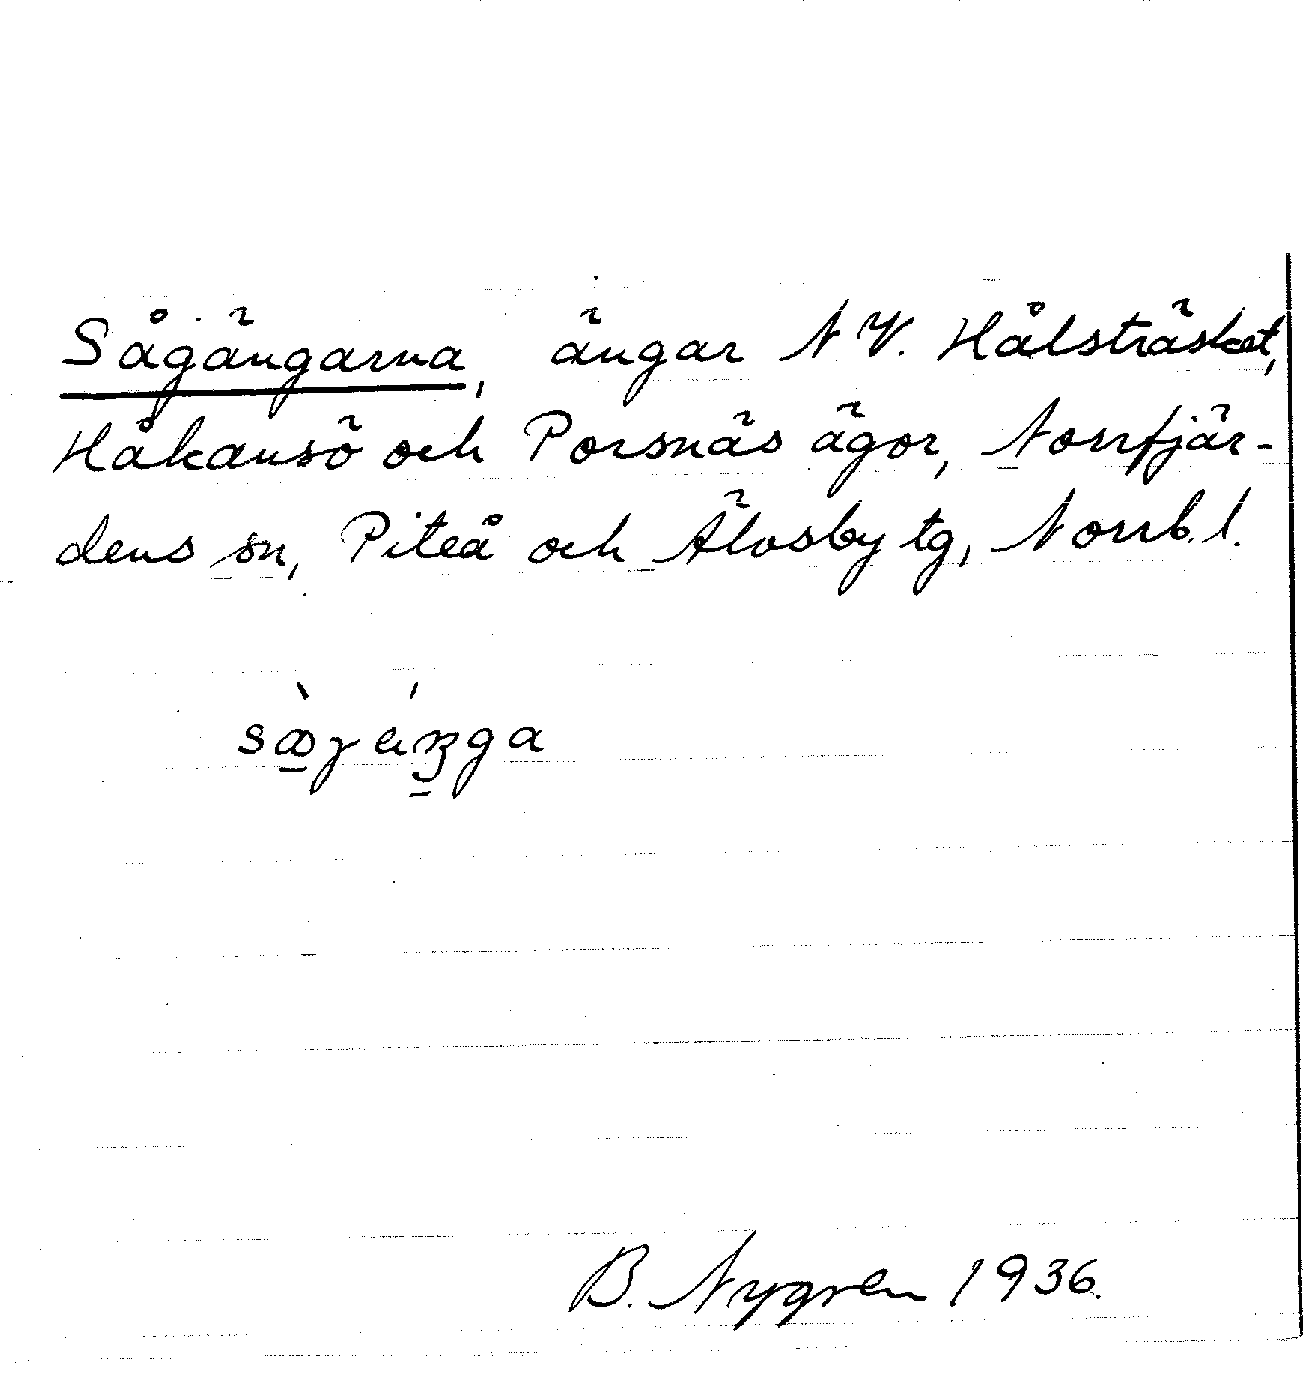 Sågängarna, ängar NV. Hålsträsket,
Håkansö och Porsnäs ägor, Norrfjär-
dens sn, Piteå och Älvsby tg, Norrb. l.
B. Nygren 1936.